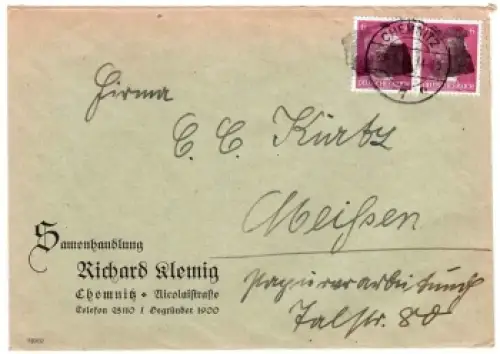 CHEMNITZ
DEUTSCHES REICH
Firma
C. C. Kurtz
Meißen
Papierverarbeitung
Talstr. 80
Samenhandlung
Richard Klemig
Chemnitz • Nicolaistraße
Telefon 25110 / Gegründet 1900